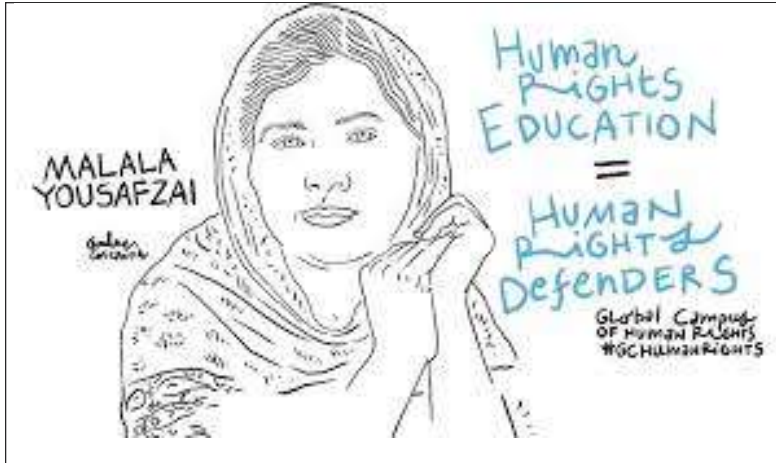 MALALA
YOUSAFZAI
Human
RiGHTS
EDUCATION
=
HUMaN
RiGHTS
DefenDERS
Global Campus
OF HUMAN RiGHTS
#GCHUMANRiGHTS